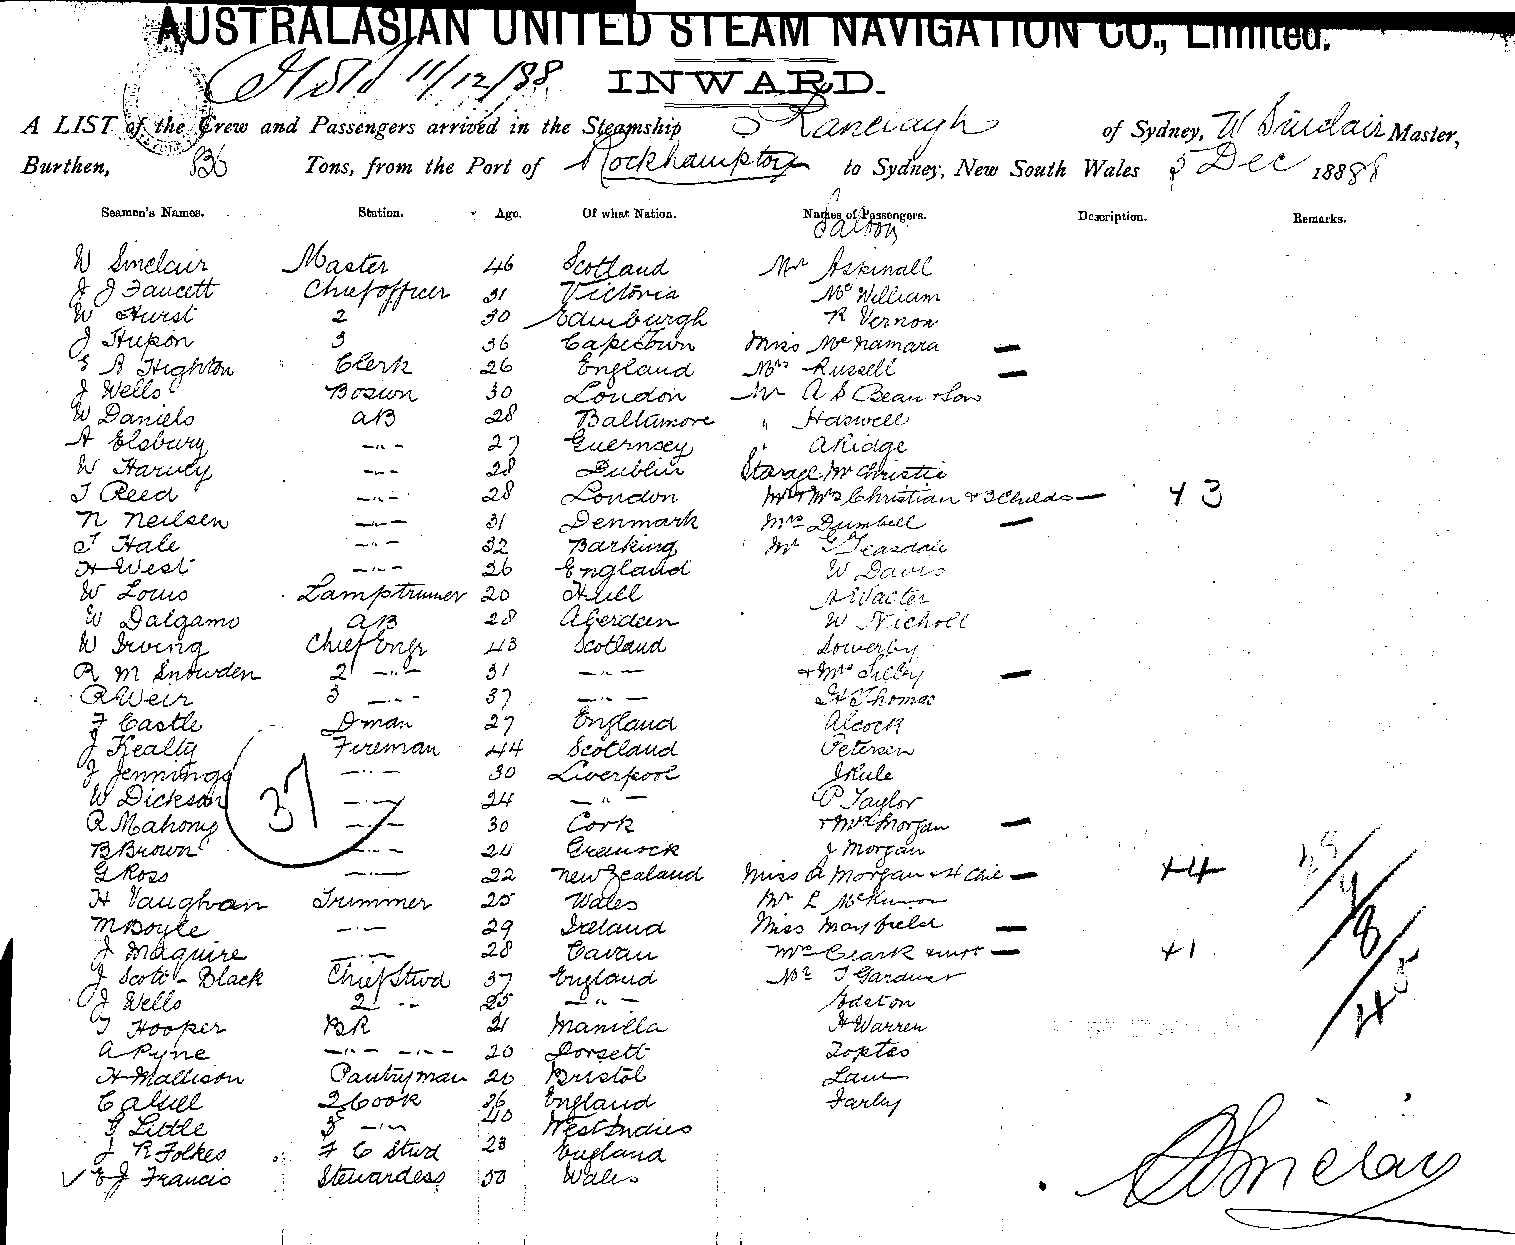 AUSTRALASIAN UNITED STEAM NAVIGATION CO., Limited.
11/12/88 INWARD.
A LIST of the Crew and Passengers arrived in the Steamship Ranelagh of Sydney, W Sinclair Master,
Burthen, 836 Tons, from the Port of Rockhampton to Sydney, New South Wales 5 Dec 1888
Seamen's Names. Station. Age. Of what Nation. Names of Passengers. Description. Remarks.
Saloon
W Sinclair Master 46 Scotland Mr Askinall
J J Faucett Chief officer 31 Victoria McWilliam
W Hurst 2 30 Edinburgh R Vernon
J Hupon 3 36 Capetown Miss McNamara —
E A Highton Clerk 26 England Mrs Russell —
J Wells Bosun 30 London Mr A S Bean & Son
W Daniels AB 28 Baltimore " Haswell
A Elsbury —"— 27 Guernsey " A Ridge
W Harvey —"— 28 Dublin Storage Mr Christie
T Reed —"— 28 London Mr & Mrs Christian & 3 Childs — +3
N Neilsen —"— 31 Denmark Mrs Dumbell —
T Hale —"— 32 Barking Mr G Teasdale
H West —"— 26 England W Davis
W Louis Lamptrimer 20 Hull A Walter
W Dalgarno AB 28 Aberdeen W Nicholl
W Irving Chief Engr 43 Scotland Sowerby
R M Snowden 2 —"— 31 —"— & Mrs Silley —
R Weir 3 —"— 37 —"— H Thomas
F Castle Dman 27 England Alcock
J Kealty Fireman 44 Scotland Petersen
J Jennings —"— 30 Liverpool J Rule
W Dickson —"— 24 —"— P Taylor
37
R Mahony —"— 30 Cork & Mrs Morgan —
B Brown —"— 24 Greenock J Morgan
G Ross —"— 22 New Zealand Miss A Morgan & 4 Chil — +4
H Vaughan Trimmer 25 Wales Mr L McKinnon
M Boyle —"— 29 Ireland Miss Mayfield —
J Maguire —"— 28 Cavan Mrs Clark & inft — +1
8
J Scott-Black Chief Stwd 37 England Mr T Gardner
J Wells 2 " 25 —"— Easton
45
T Hooper BR 21 Manilla H Warren
A Pyne —"— —"— 20 Dorsett
H Mallison Pantryman 20 Bristol Law
2 Cook 26 England Farley
G Little 3 —"— 40 West Indies
J R Folkes F C Stwd 23 England
E J Francis Stewardess 50 Wales
W Sinclair